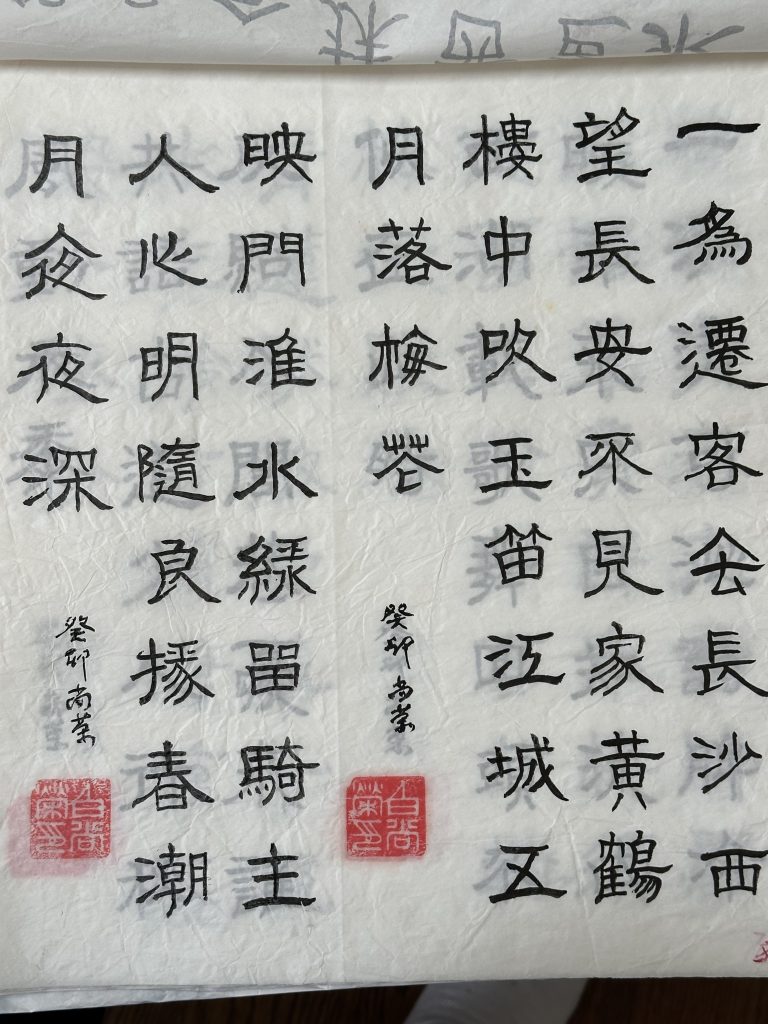 一為遷客去長沙西
望長安不見家黃鶴
樓中吹玉笛江城五
月落梅花
癸卯尚榮
白尚榮印
映門淮水綠留騎主
人心明隨良掾春潮
月夜夜深
癸卯尚榮
白尚榮印